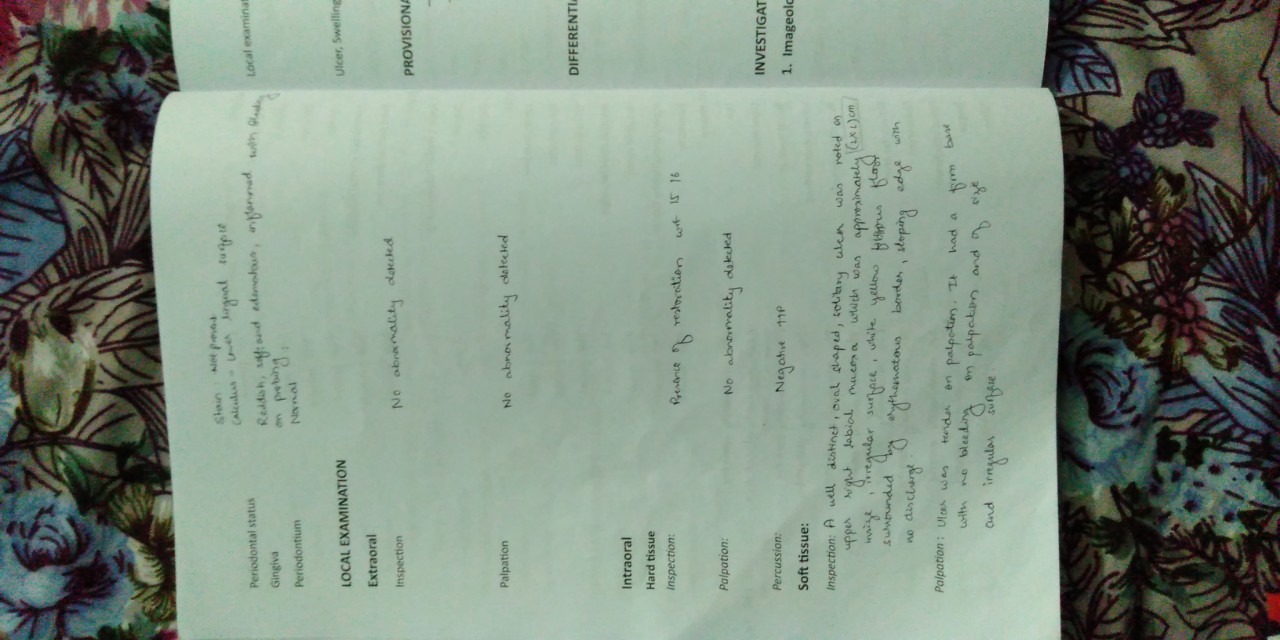 Stain : Not present
Calculus - Lower lingual surface
Periodontal status
Gingiva Reddish, soft and edematous, inflammed with bleeding
on probing
Periodontium Normal
LOCAL EXAMINATION
Extraoral
Inspection No abnormality detected
Palpation No abnormality detected
Intraoral
Hard tissue
Inspection: Presence of restoration wrt 15 16
Palpation: No abnormality detected
Percussion: Negative TTP
Soft tissue:
Inspection: A well distinct, oval shaped, solitary ulcer was noted on
upper right labial mucosa which was approximately (1x1)cm
insize, irregular surface, white yellow floor
surrounded by erythematous border, sloping edge with
no discharge.
Palpation: Ulcer was tender on palpation. It had a firm base
with no bleeding on palpation and of size
and irregular surface
Local examinat
Ulcer, Swelling
PROVISIONA
DIFFERENTI
INVESTIGAT
1. Imageolo